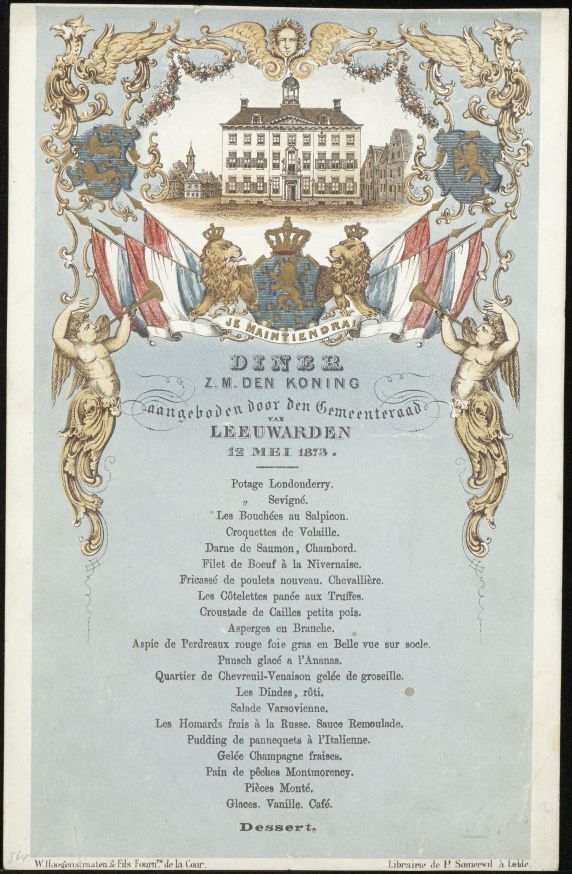 JE MAINTIENDRAI
DINER
Z. M. DEN KONING
aangeboden door den Gemeenteraad
VAN
LEEUWARDEN
12 MEI 1873.
Potage Londonderry.
„ Sevigné.
Les Bouchées au Salpicon.
Croquettes de Volaille.
Darne de Saumon, Chambord.
Filet de Boeuf à la Nivernaise.
Fricassé de poulets nouveau. Chevallière.
Les Côtelettes panée aux Truffes.
Croustade de Cailles petits pois.
Asperges en Branche.
Aspic de Perdreaux rouge foie gras en Belle vue sur socle.
Punsch glacé a l'Ananas.
Quartier de Chevreuil-Venaison gelée de groseille.
Les Dindes, rôti.
Salade Varsovienne.
Les Homards frais à la Russe. Sauce Remoulade.
Pudding de pannequets à l'Italienne.
Gelée Champagne fraises.
Pain de pêches Montmorency.
Pièces Monté.
Glaces. Vanille. Café.
Dessert.
W. Hoogenstraaten & Fils Fournrs de la Cour.
Librairie de P. Somerwil à Leide.